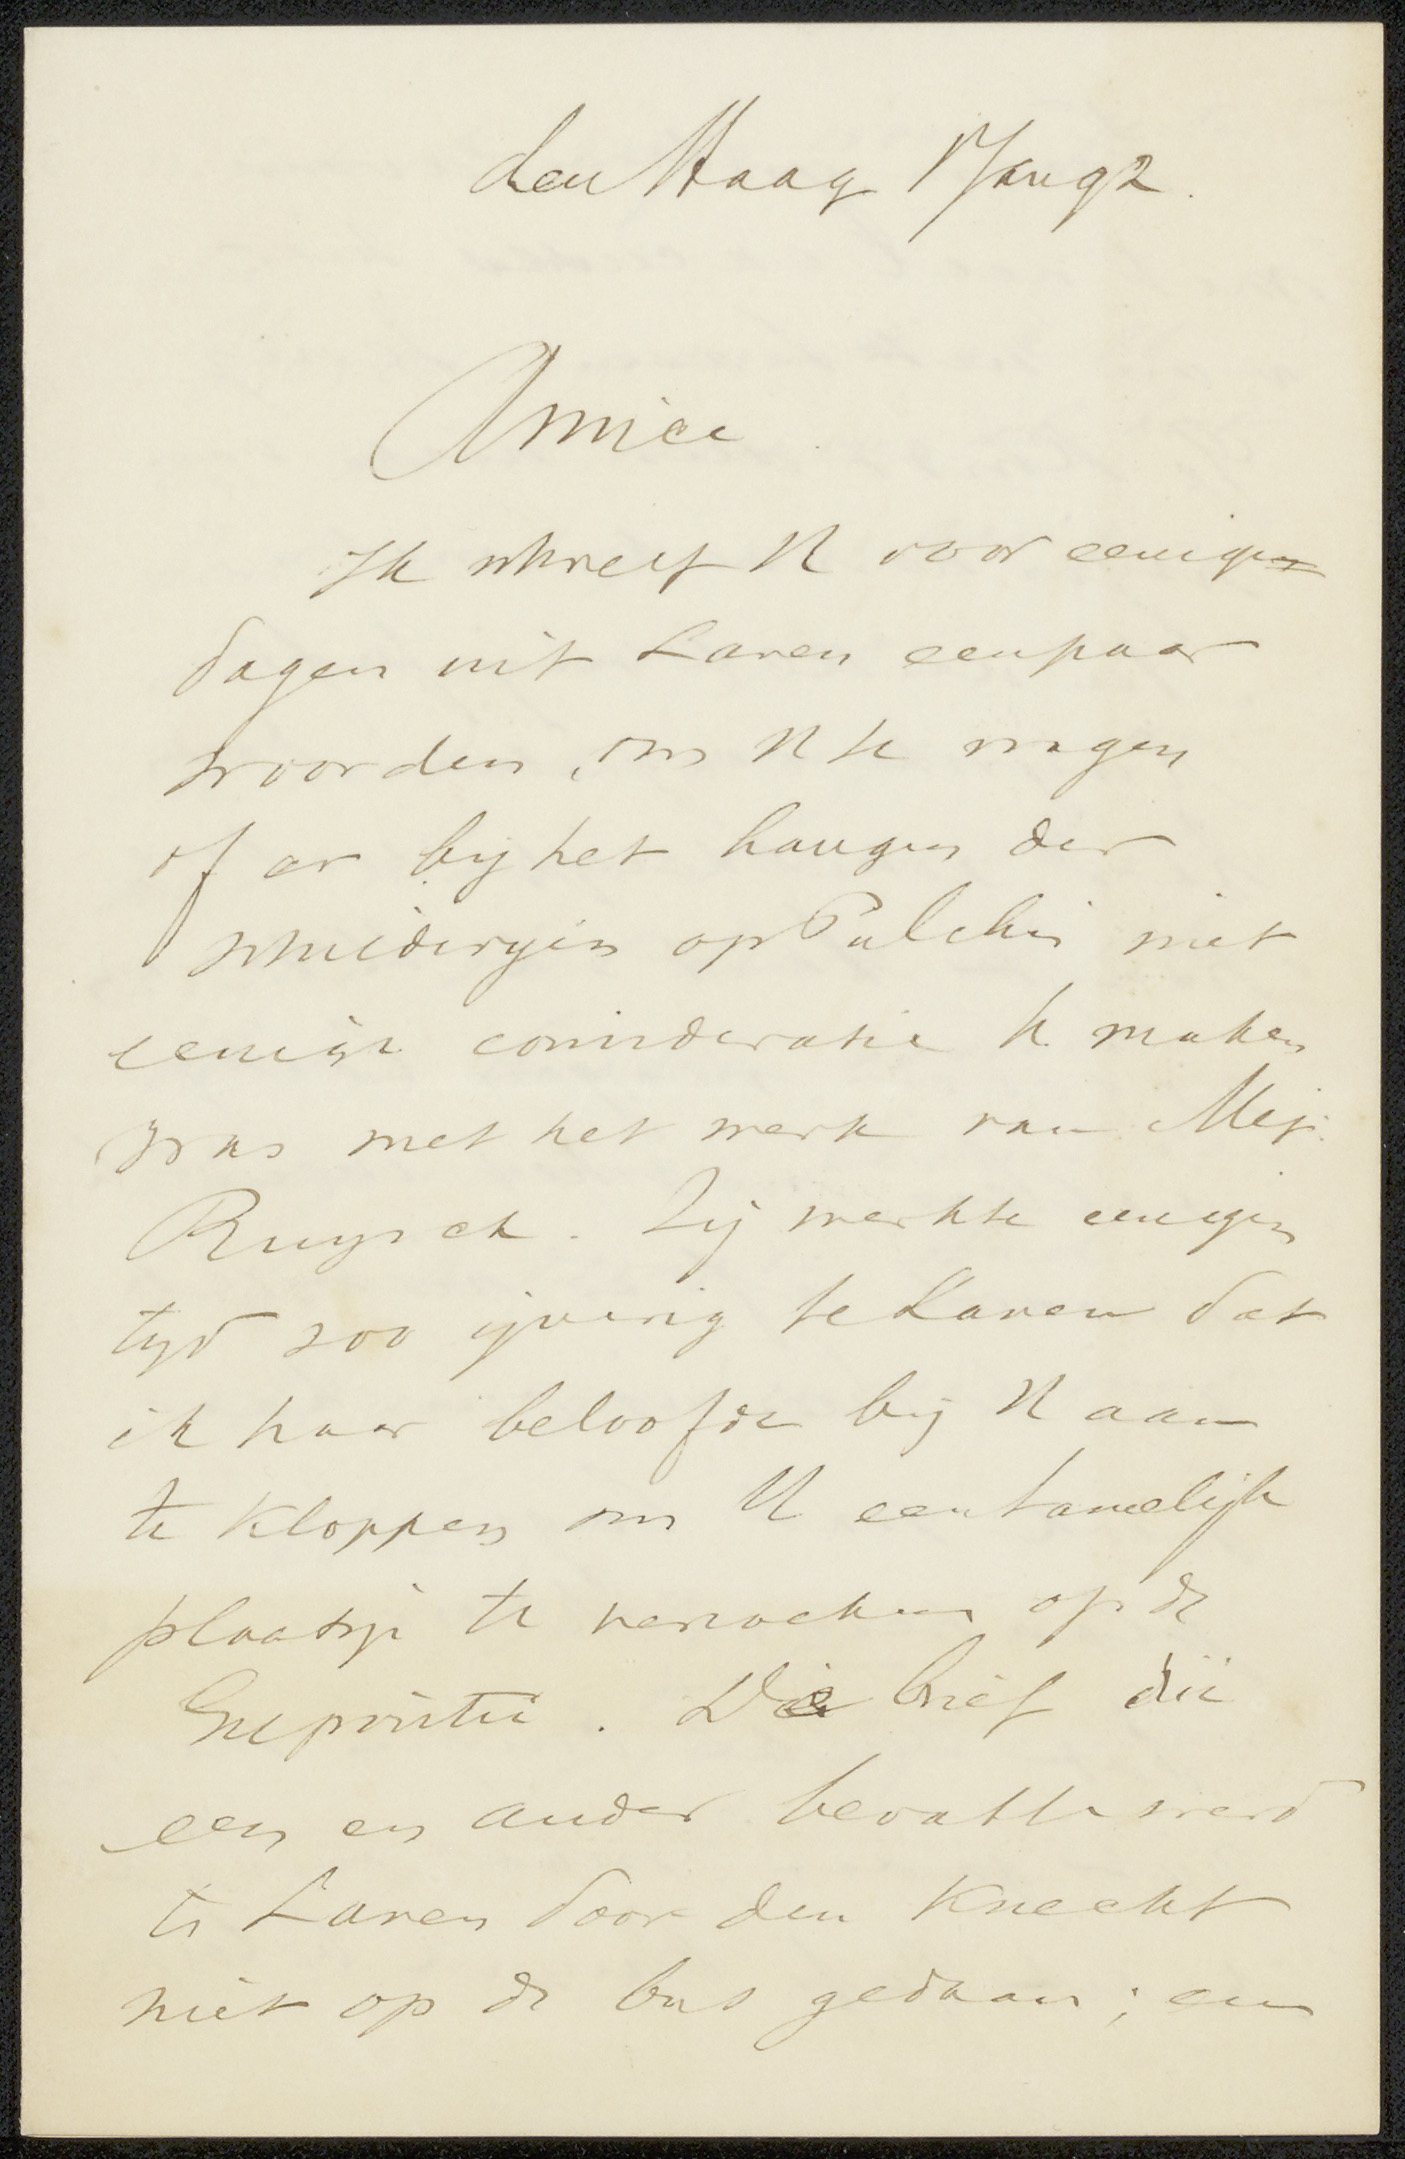 den Haag 17 Aug 92.
Amice
Ik schreef U voor eenige
dagen uit Laren een paar
woorden, om U te vragen
of er bij het hangen der
schilderijen op Pulchri niet
eenige consideratie te maken
was met het werk van Mej.
Ruysch. Zij werkte eenigen
tijd zoo ijverig te Laren dat
ik haar beloofde bij U aan
te kloppen om U een tamelijk
plaatsje te verzoeken op de
Expositie. Die brief die
een en ander bevatte werd
te Laren door den Knecht
niet op de bus gedaan; en